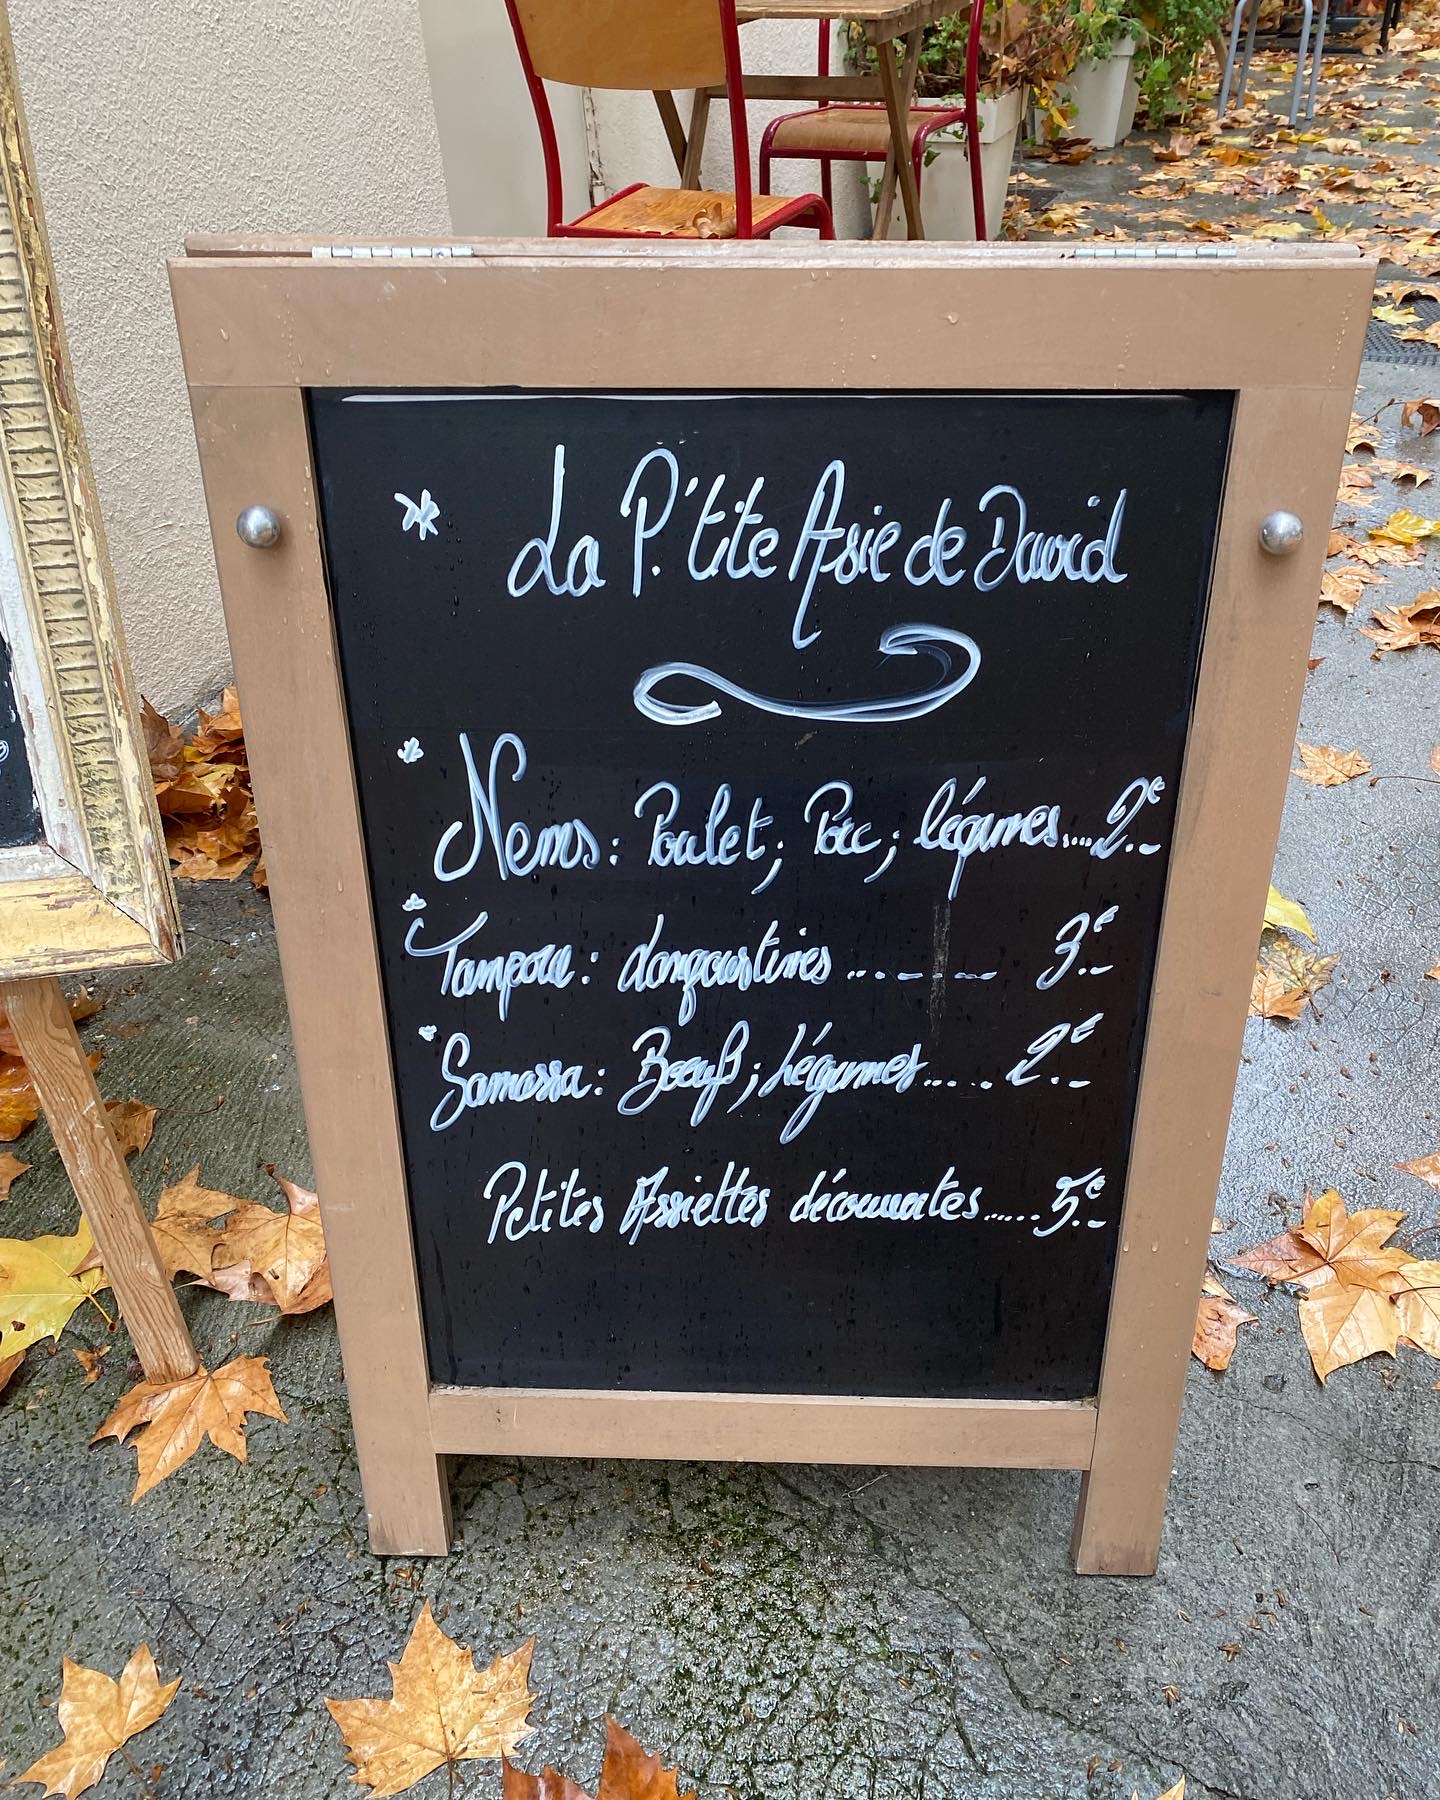 * La P'.tite Asie de David
* Nems: Poulet; Porc; légumes....2.-€
* Tempora: Langoustines ..._._ _ 3.-€
* Samossa: Boeuf; Légumes..... 2.-€
Petites Assiettes découvertes......5.-€